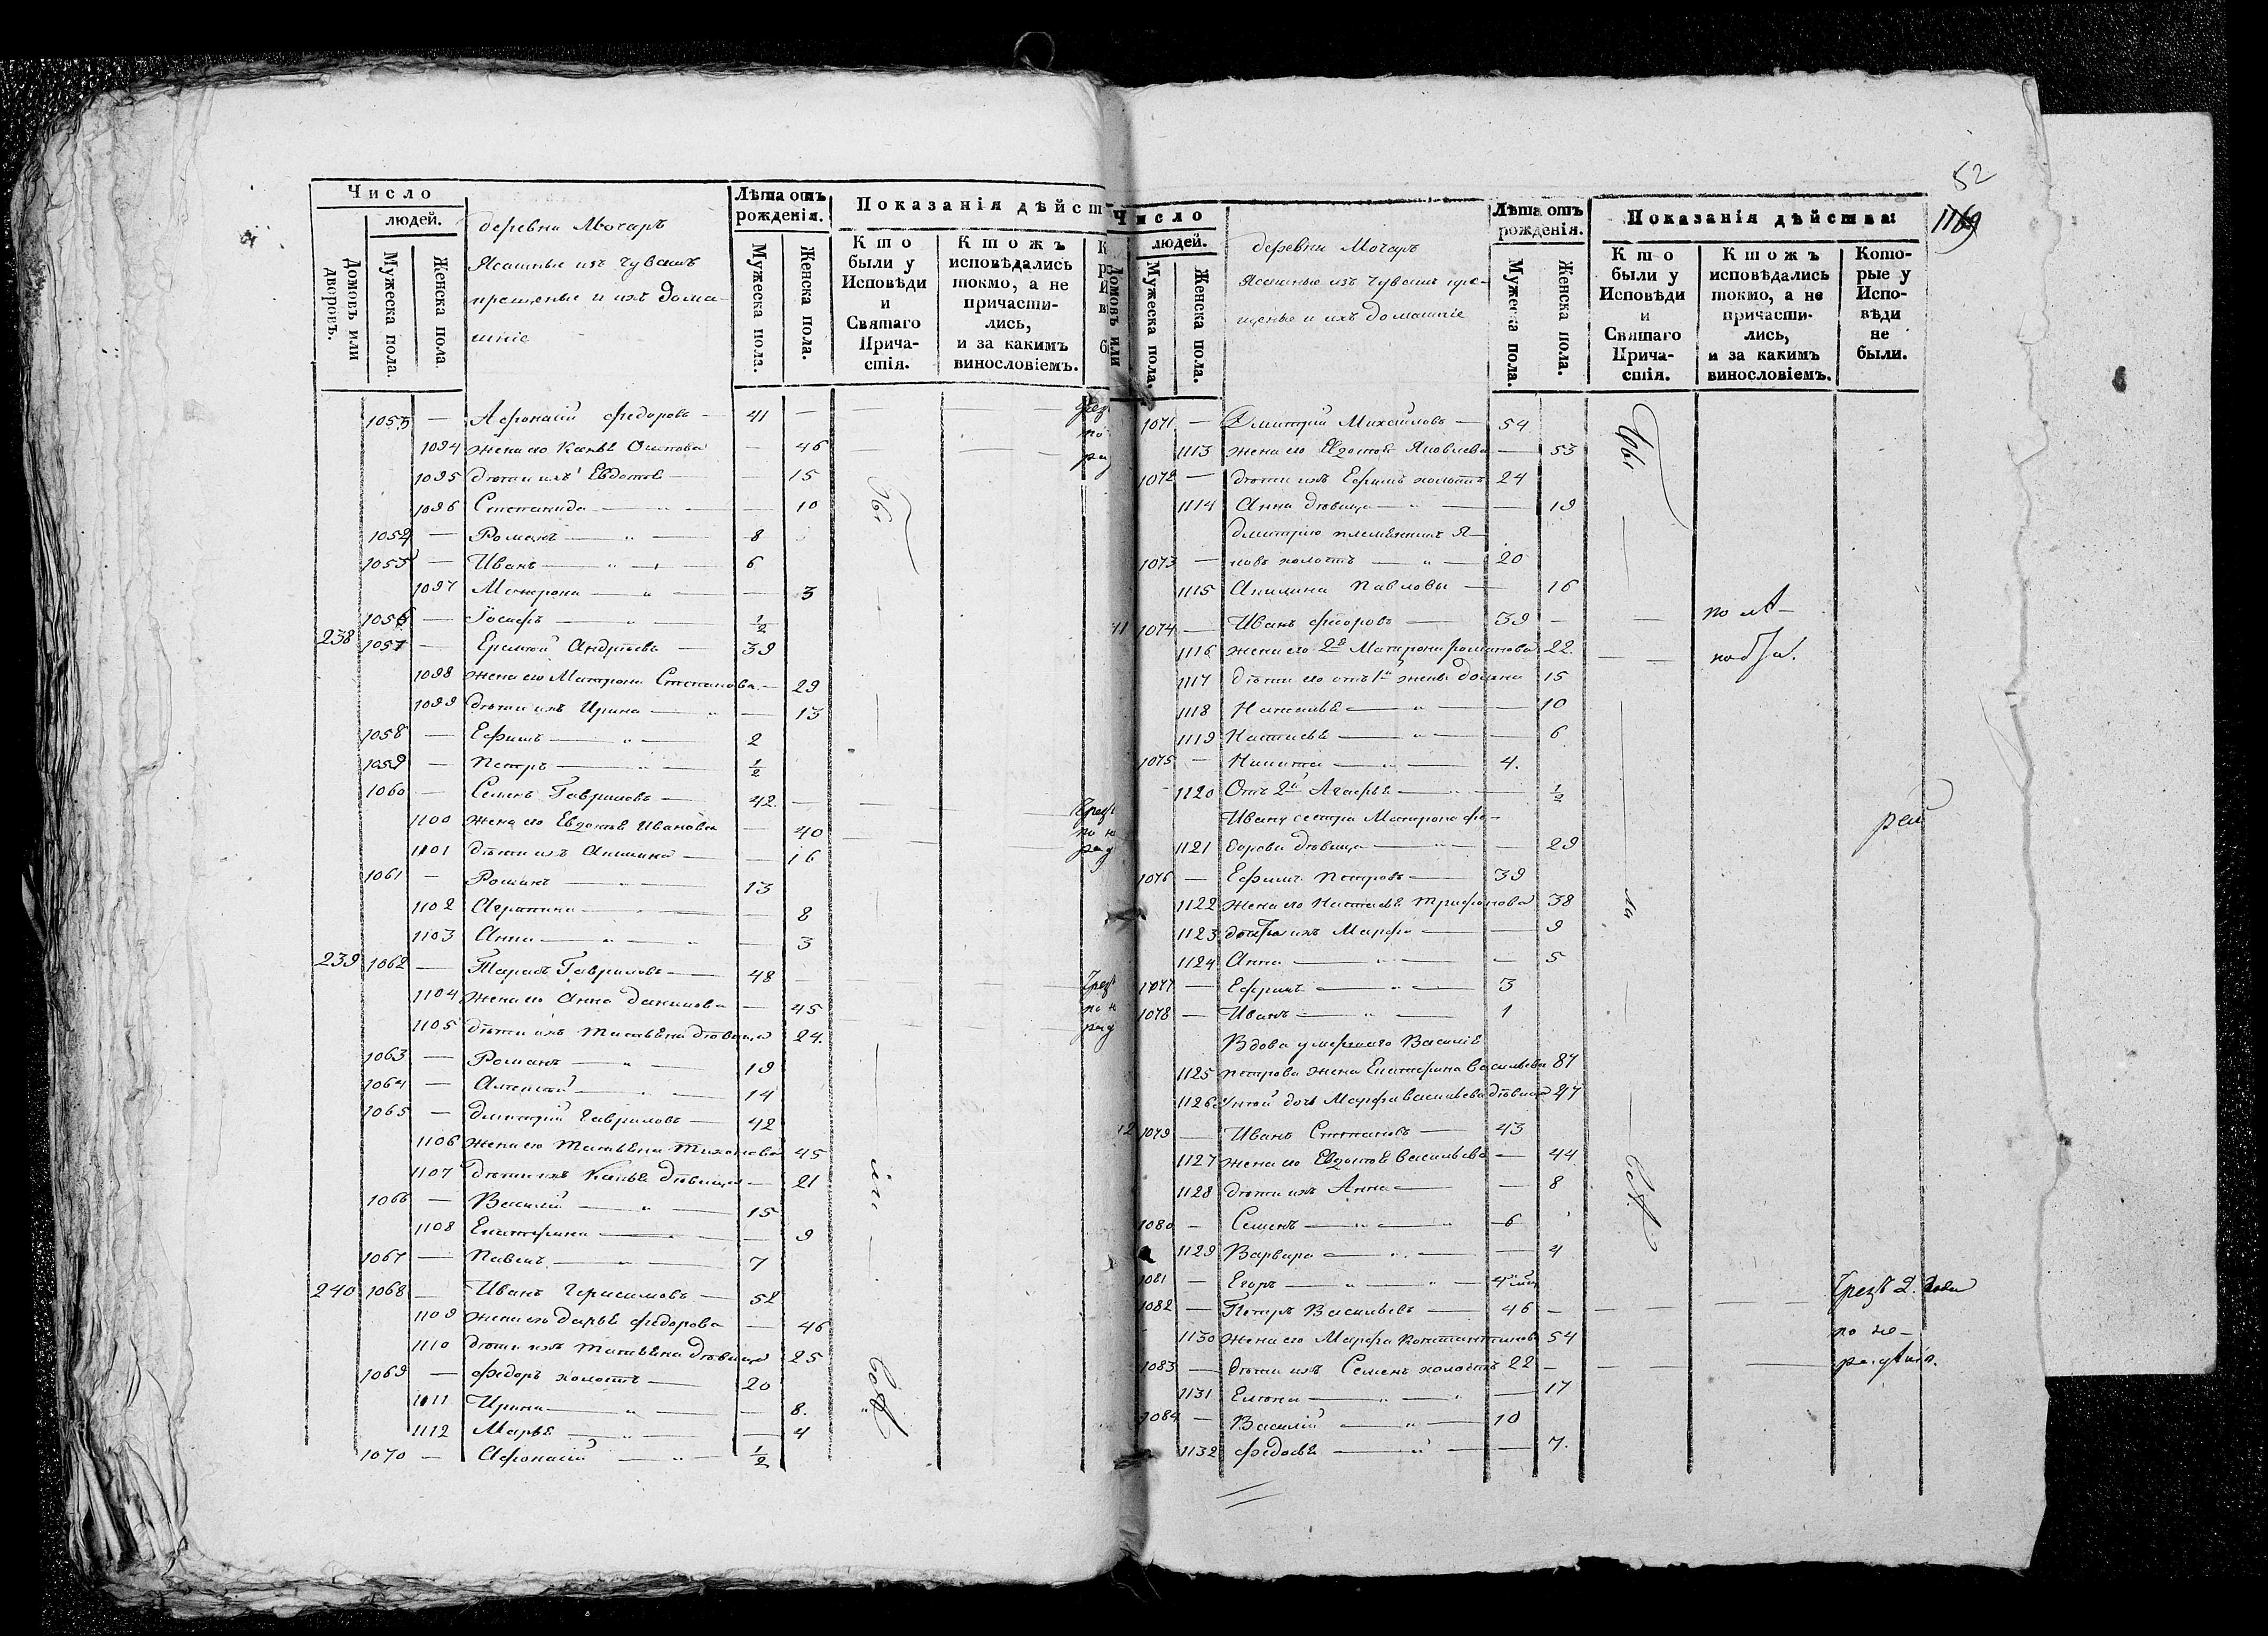 Число
людей.
Домовъ или дворовъ.
Мужеска пола.
Женска пола
деревни Мочаръ
Ясашные изъ чувашъ
крещеные и ихъ дома-
шніе
Лѣта отъ рожденія.
Мужеска пола.
Женска пола.
Показанія дѣйст
Кто были у Исповѣди и Святаго Причастія.
Ктожъ исповѣдались токмо, а не причастились, и за какимъ винословіемъ.
1053 — Афонасій Федоровъ — 41 —
1094 жена его Осипова — 46
1095 дѣти ихъ Евдотья — 15
1096 Степанида — 10
Романъ — 8
1055 — Иванъ — 6
1097 Матрона — 3
1056 — Іосифъ — 1/2
238 1057 — Еремей Андреевъ — 39
1098 жена его Матрона Степанова — 29
1099 дѣти ихъ Ирина — 13
1058 — Ефимъ — 2
1059 — Петръ — 1/2
1060 — Семенъ Гавриловъ — 42
1100 жена его Евдотья Иванова — 40
1101 дѣти ихъ Акилина — 16
1061 — Романъ — 13
1102 Аграпина — 8
1103 Анна — 3
239 1062 — Тарасъ Гавриловъ — 48
1104 жена его Анна Данилова — 45
1105 дѣти ихъ Татьяна дѣвица 24.
1063 — Романъ — 19
1064 — Алексѣй — 14
1065 — Дмитрій Гавриловъ — 42
1106 жена его Татьяна Тихонова 45
1107 дѣти ихъ дѣвица — 21
1066 — Василій — 15
1108 Екатерина — 9
1067 — Павелъ — 7
240 1068 — Иванъ Герасимовъ — 52
1109 жена его Дарья Федорова — 46
1110 дѣти ихъ Татьяна дѣвица 25
1069 — Федоръ холостъ — 20
1111 Ирина — 8.
1112 Марья — 4
1070 — Афонасій — 1/2
52
1169
Число
людей.
Домовъ или
Мужеска пола.
Женска пола.
деревни Мочаръ
Ясашные изъ чувашъ кре-
щеные и ихъ домашніе
Лѣта отъ рожденія.
Мужеска пола.
Женска пола.
Показанія дѣйства:
Кто были у Исповѣди и Святаго Причастія.
Ктожъ исповѣдались токмо, а не причастились, и за какимъ винословіемъ.
Которые у Исповѣди не были.
1071 — Дмитрій Михайловъ — 54
1113 жена его Евдотья Яковлева — 53
1072 — дѣти ихъ Ефимъ холостъ 24
1114 Анна дѣвица — 19
Дмитрію племянникъ Я-
1073 — ковъ холостъ — 20
1115 Акилина Павлова — 16
1074 — Иванъ Федоровъ — 39 —
1116 жена его 2я Матрона Романова 22.
1117 дѣти его отъ 1й жены 15
1118 Наталья — 10
1119 Настасья — 6
1075 — Никита — 4.
1120 Отъ 2й Агафья — 1/2
Ивану сестра Матрона Фе-
1121 дорова дѣвица — 29
1076 — Ефимъ Петровъ — 39
1122 жена его Настасья Трифонова 38
1123 дѣти ихъ Марфа — 9
1124 Анна — 5
1077 — Ефримъ — 3
1078 — Иванъ — 1
Вдова умершаго Василія
1125 Петрова жена Екатерина Васильева 87
1126 У ней дочь Марфа Васильева дѣвица 47
1079 — Иванъ Степановъ — 43
1127 жена его Евдотья Васильева — 44
1128 дѣти ихъ Анна — 8
1080 — Семенъ — 6
1129 Варвара — 4
1081 — Егоръ — 4 мѣ
1082 — Петръ Васильевъ — 46 — Чрезъ 2. года
1130 жена его Марфа Константинова 54 по не-
1083 — дѣти ихъ Семенъ холостъ 22 — радѣнію.
1131 Елена — 17
1084 — Василій — 10
1132 Федосья — 7.